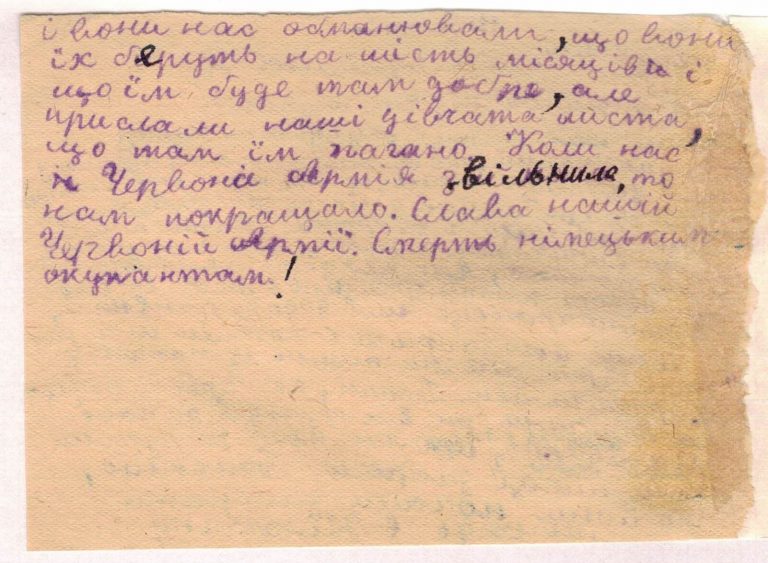 і вони нас обманювали, що вони
їх беруть на шість місяців і
що їм буде там добре, але
прислали наші дівчата листа,
що там їм пагано. Коли нас
Червона Армія звільнила, то
нам покращало. Слава нашій
Червоній Армії. Смерть німецьким
окупантам!